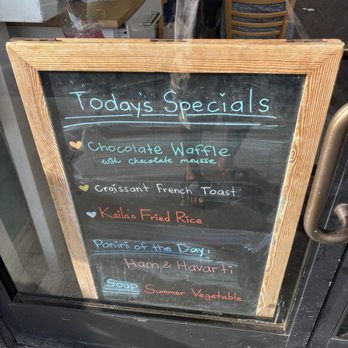 Today's Specials
Chocolate Waffle
with chocolate mousse
Croissant French Toast
Kaila's Fried Rice
Panini of the Day:
Ham & Havarti
Soup Summer Vegetable